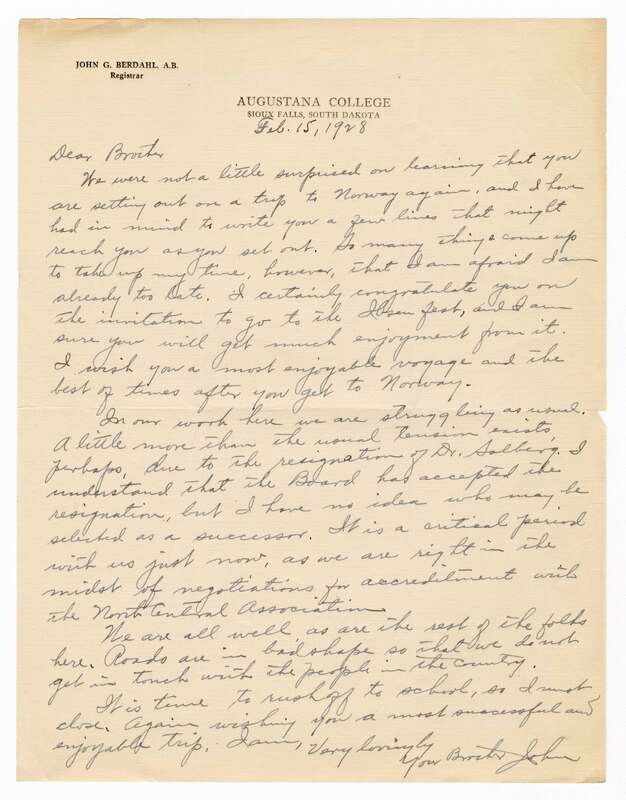 JOHN G. BERDAHL, A.B.
Registrar
AUGUSTANA COLLEGE
SIOUX FALLS, SOUTH DAKOTA
Feb. 15, 1928
Dear Brother
We were not a little surprised on learning that you
are setting out on a trip to Norway again, and I have
had in mind to write you a few lines that might
reach you as you set out. So many things come up
to take up my time, however, that I am afraid I am
already too late. I certainly congratulate you on
the invitation to go to the Ibsen fest, and I am
sure you will get much enjoyment from it.
I wish you a most enjoyable voyage and the
best of times after you get to Norway.
In our work here we are struggling as usual.
A little more than the usual tension exists,
perhaps, due to the resignation of Dr. Solberg. I
understand that the Board has accepted the
resignation, but I have no idea who may be
selected as a successor. It is a critical period
with us just now, as we are right in the
midst of negotiations for accreditment with
the North Central Association
We are all well, as are the rest of the folks
here. Roads are in bad shape so that we do not
get in touch with the people in the country.
It is time to rush off to school, so I must
close. Again wishing you a most successful and
enjoyable trip, I am, Very lovingly
Your Brother John